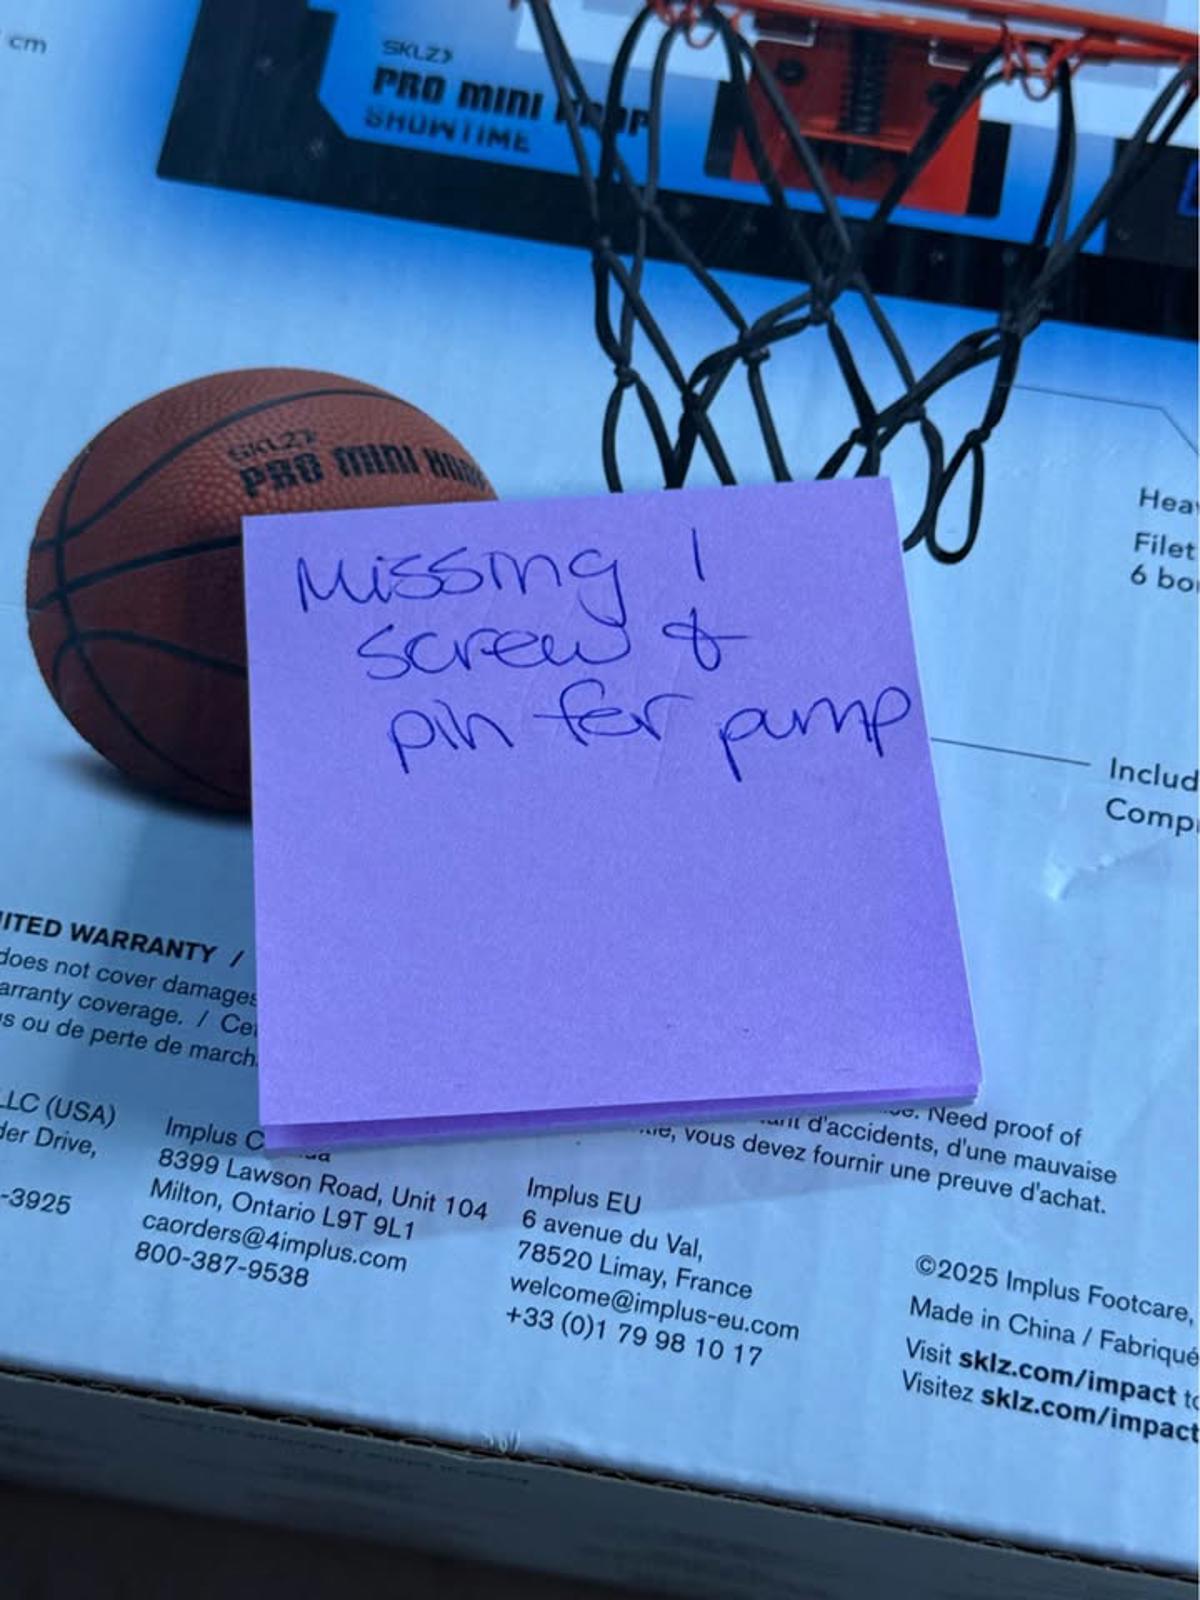 cm
SKLZ
PRO MINI HOOP
SHOWTIME
SKLZ
PRO MINI HOOP
Missing 1
screw &
pin for pump
Hea
Filet
6 bo
Includ
Comp
ITED WARRANTY /
does not cover damages
arranty coverage. / Ce
s ou de perte de march
LLC (USA)
der Drive,
-3925
Implus C da
8399 Lawson Road, Unit 104
Milton, Ontario L9T 9L1
caorders@4implus.com
800-387-9538
Implus EU
6 avenue du Val,
78520 Limay, France
welcome@implus-eu.com
+33 (0)1 79 98 10 17
Need proof of
d'accidents, d'une mauvaise
vous devez fournir une preuve d'achat.
©2025 Implus Footcare,
Made in China / Fabriqué
Visit sklz.com/impact to
Visitez sklz.com/impact